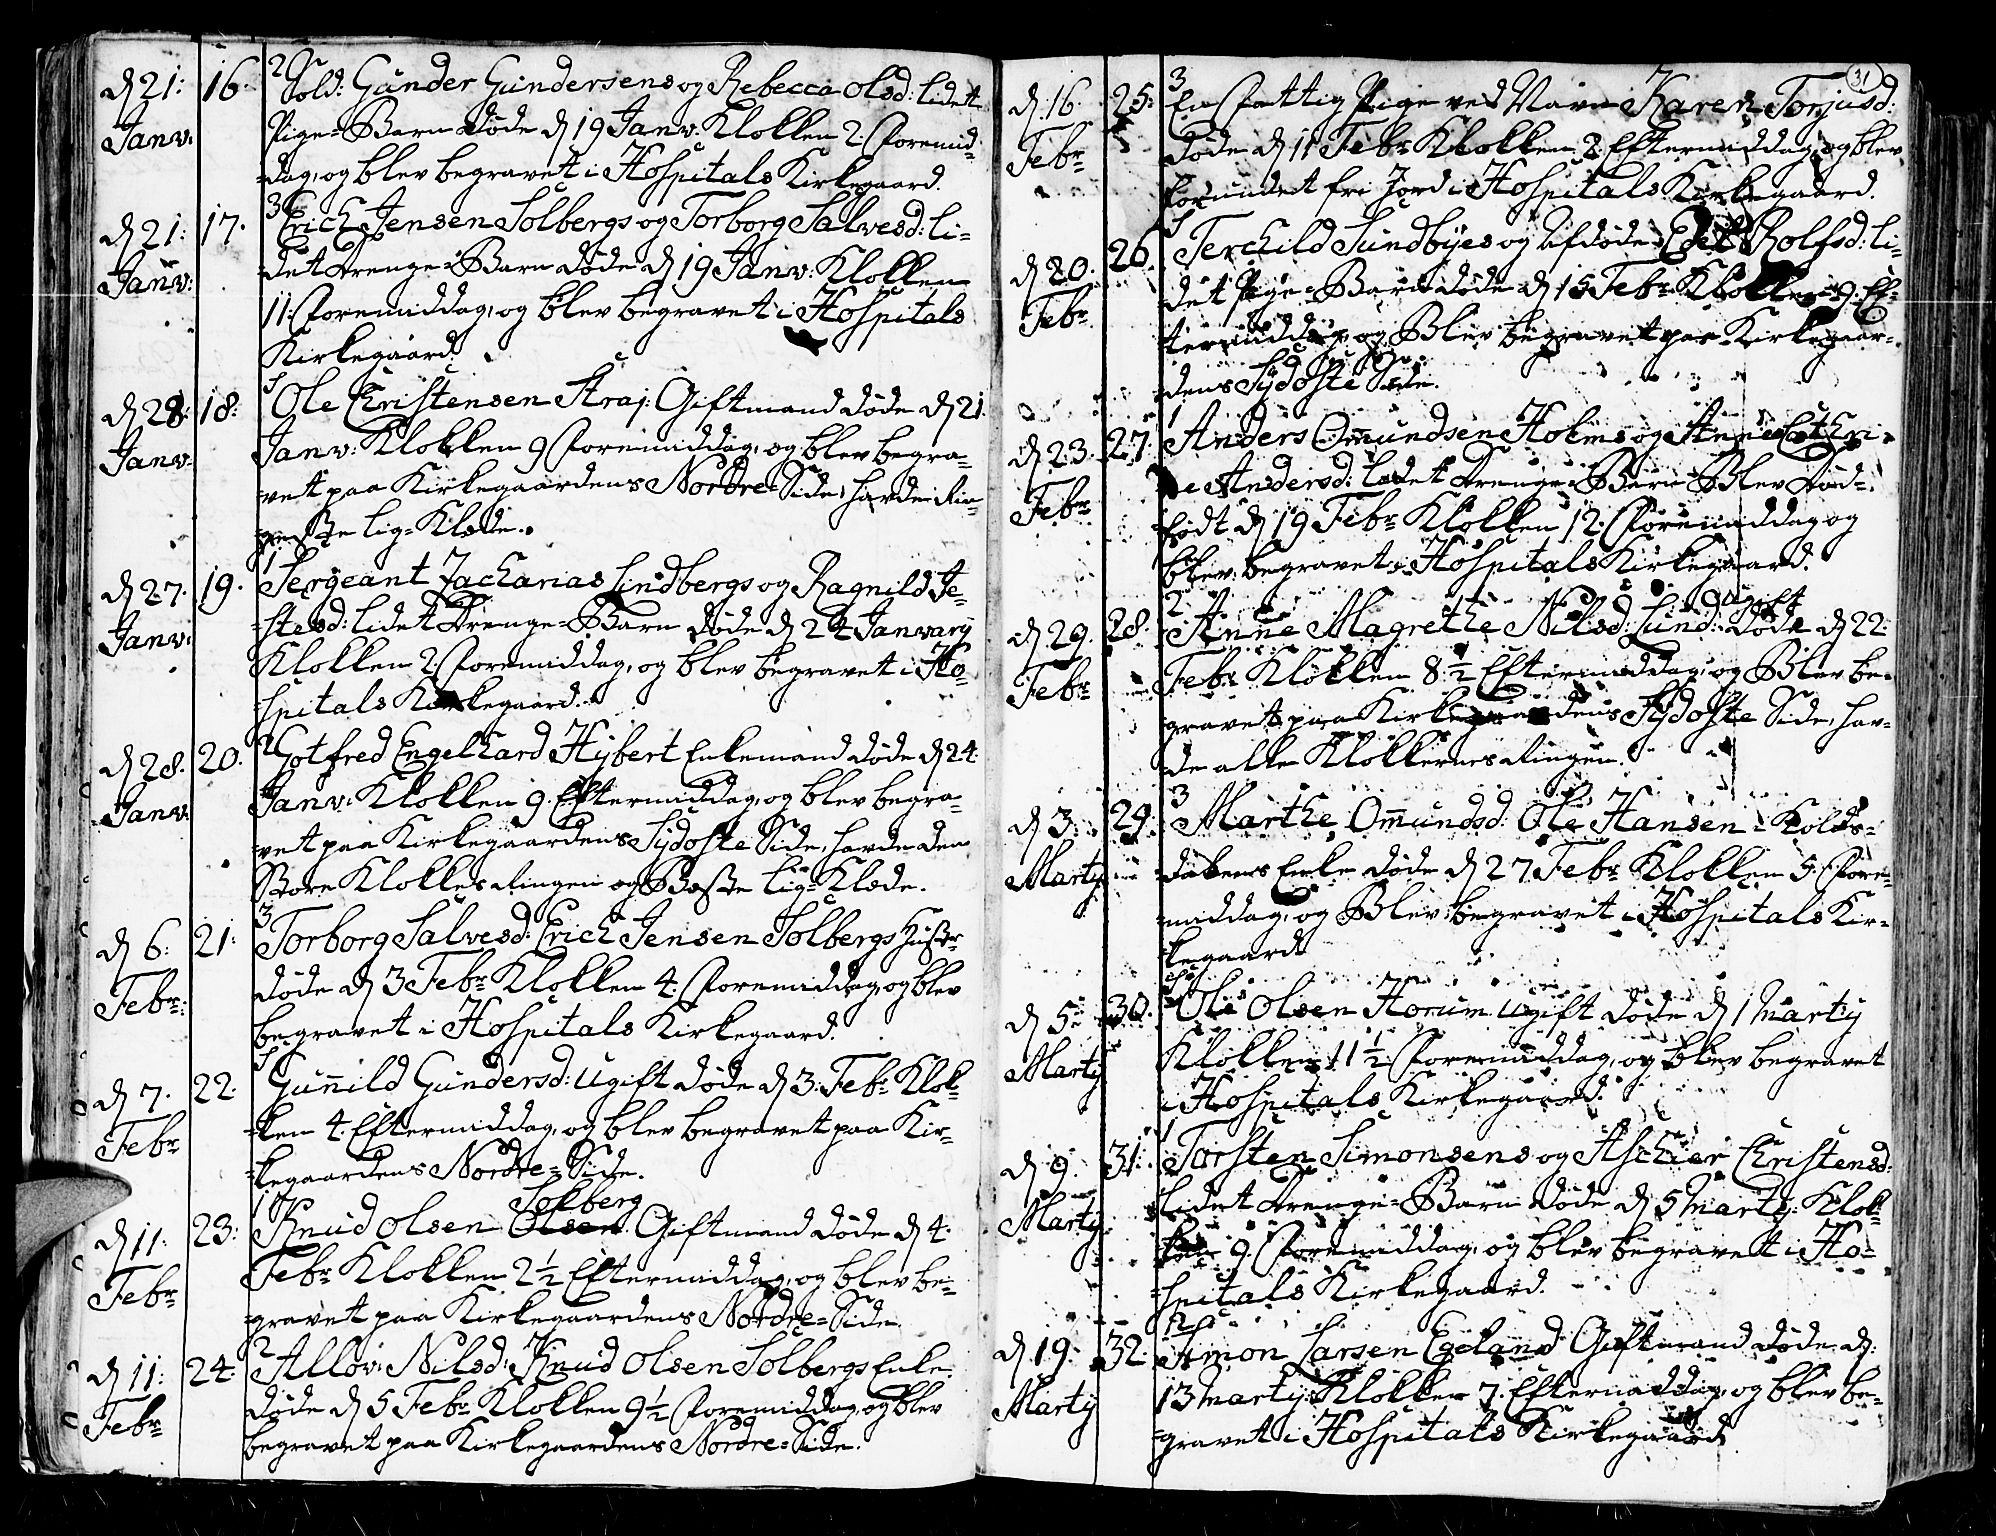 d 21: 16. 2 Sold: Gunder Gundersens og Rebecca Olsd: lidet
Janv: Pige-Barn døde d 19 Janv: Klokken 2. Foremid-
dag, og blev begravet i Hospitals Kirkegaard.
d 21: 17. 3 Erich Jensen Solbergs og Torborg Salvesd: li-
Janv: det Drenge-Barn døde d 19 Janv: Klokken
11. Foremiddag, og blev begravet i Hospitals
Kirkegaard.
d 28: 18: Ole Christensen Straj: Giftmand døde d 21.
Janv: Janv: Klokken 9 Foremiddag, og blev begra-
vet paa Kirkegaardens Nordre-Side, havde Rin-
geste Lig-Klæde.
d 27. 19. 1 Sergeant Zacharias Lindbergs og Ragnild Je-
Janv: stesd: lidet Drenge-Barn døde d 24 Janvary
Klokken 2. Foremiddag, og blev begravet i Ho-
spitals Kirkegaard.
d 28. 20. 2 Gotfred Engelhard Hybert Enkemand døde d 24.
Janv: Janv: Klokken 9. Eftermiddag, og blev begra-
vet paa Kirkegaardens Sydoste Side, havde den
Store Klokkes Ringen og Beste Lig-Klæde.
d 6: 21: 3 Torborg Salvesd: Erich Jensen Solbergs Hustr
Febr: døde d 3 Febr Klokken 4. Foremiddag, og blev
begravet i Hospitals Kirkegaard.
d 7. 22. Gunnild Gundersd: Ugift døde d 3. Febr Klok-
Febr ken 4. Eftermiddag, og blev begravet paa Kir-
kegaardens Nordre-Side.
Solberg
d 11: 23: 1 Knud Olsen Olsen Giftmand døde d 4.
Febr Febr Klokken 2 1/2 Eftermiddag, og blev be-
gravet paa Kirkegaardens Nordre-Side.
d 11: 24. 2 Allov: Nilsd: Knud Olsen Solbergs Enke
Febr døde d 5 Febr Klokken 9 1/2 Foremiddag, og blev
begravet paa Kirkegaardens Nordre-Side.
31
d 16. 25: 3 En Fattig Pige ved Navn Karen Torjusd:
Febr døde d 11 Febr Klokken 2 Eftermiddag, og blev
forundet fri Jord i Hospitals Kirkegaard.
d 20. 26. Terchild Sundbyes og Afdøde Rolfsd: li-
Febr det Pige-Barn døde d 15 Febr Klokken 9. Ef-
termiddag, og Blev begravet paa Kirkegaar-
dens Sydoste Side.
d 23. 27. 1 Anders Omundsen Holms og Anne Cathri-
Febr ne Andersd: lidet Drenge-Barn Blev Død-
født d 19 Febr Klokken 12. Foremiddag og
blev begravet i Hospitals Kirkegaard.
ugift
d 29. 28. 2 Anne Magrethe Nilsd: Lund: døde d 22.
Febr Febr Klokken 8 1/2 Eftermiddag, og Blev be-
gravet paa Kirkegaardens Sydoste Side, hav-
de alle Klokkernes Ringen.
d 3. 29. 3 Marthe Omundsd: Ole Hansen Kolds-
Marty dakens Enke døde d 27 Febr Klokken 5. Fore-
middag, og Blev begravet i Hospitals Kir-
kegaard
d 5 30. Ole Olsen Horum ugift døde d 1 Marty
Marty Klokken 11 1/2 Foremiddag, og blev begravet
i Hospitals Kirkegaard.
d 9 31. 1 Torsten Simonsens og Aschier Christensd:
Marty lidet Drenge-Barn døde d 5 Marty: Klok-
ken 9. Foremiddag, og blev begravet i Ho-
spitals Kirkegaard.
d 19. 32. Simon Larsen Egeland Giftmand døde d:
Marty 13 Marty: Klokken 7. Eftermiddag, og blev be-
gravet i Hospitals Kirkegaard